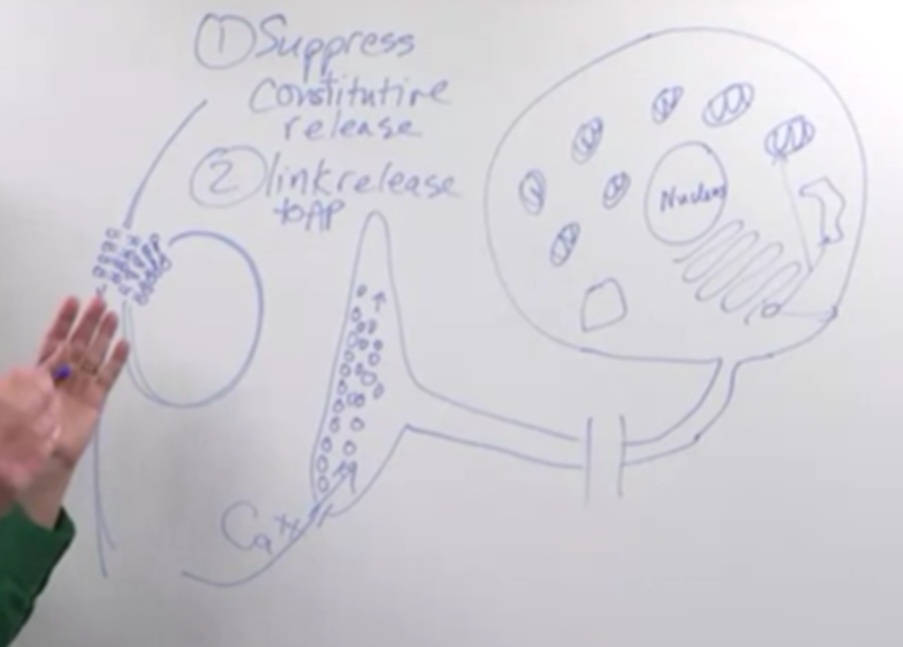 ① Suppress
constitutive
release
② link release
to AP
Nucleus
Ca++